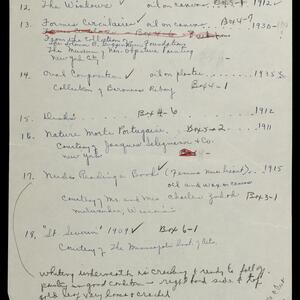 12. The Windows ✓ oil on canvas Box 3-1 1912 ✓
13. Formes Circulaires oil on canvas Box 4-7 1930-
From the Collection of
The Solomon R. Guggenheim Foundation
The Museum of Non-Objective Painting
New York City
14. Oval Composition ✓ oil on plaster 1935
Collection of Baroness Rebay Box 4-1
15. Box 4-6 1912
16. Nature Morte Portugaise. Box 5-2 1911
Courtesy of Jacques Seligmann & Co.
New York
17. Nudes Reading a Book ✓ (Femme nue lisant) 1915
oil and wax on canvas
Courtesy of Mr. and Mrs. Charles Zadok Box 3-1
Milwaukee, Wisconsin
18. "St. Severin" 1909 ✓ Box 6-1
Courtesy of The Minneapolis Inst. of Arts.
whiting underneath is cracking & ready to fall off
partly in good condition - right hand side & top
very loose & cracked